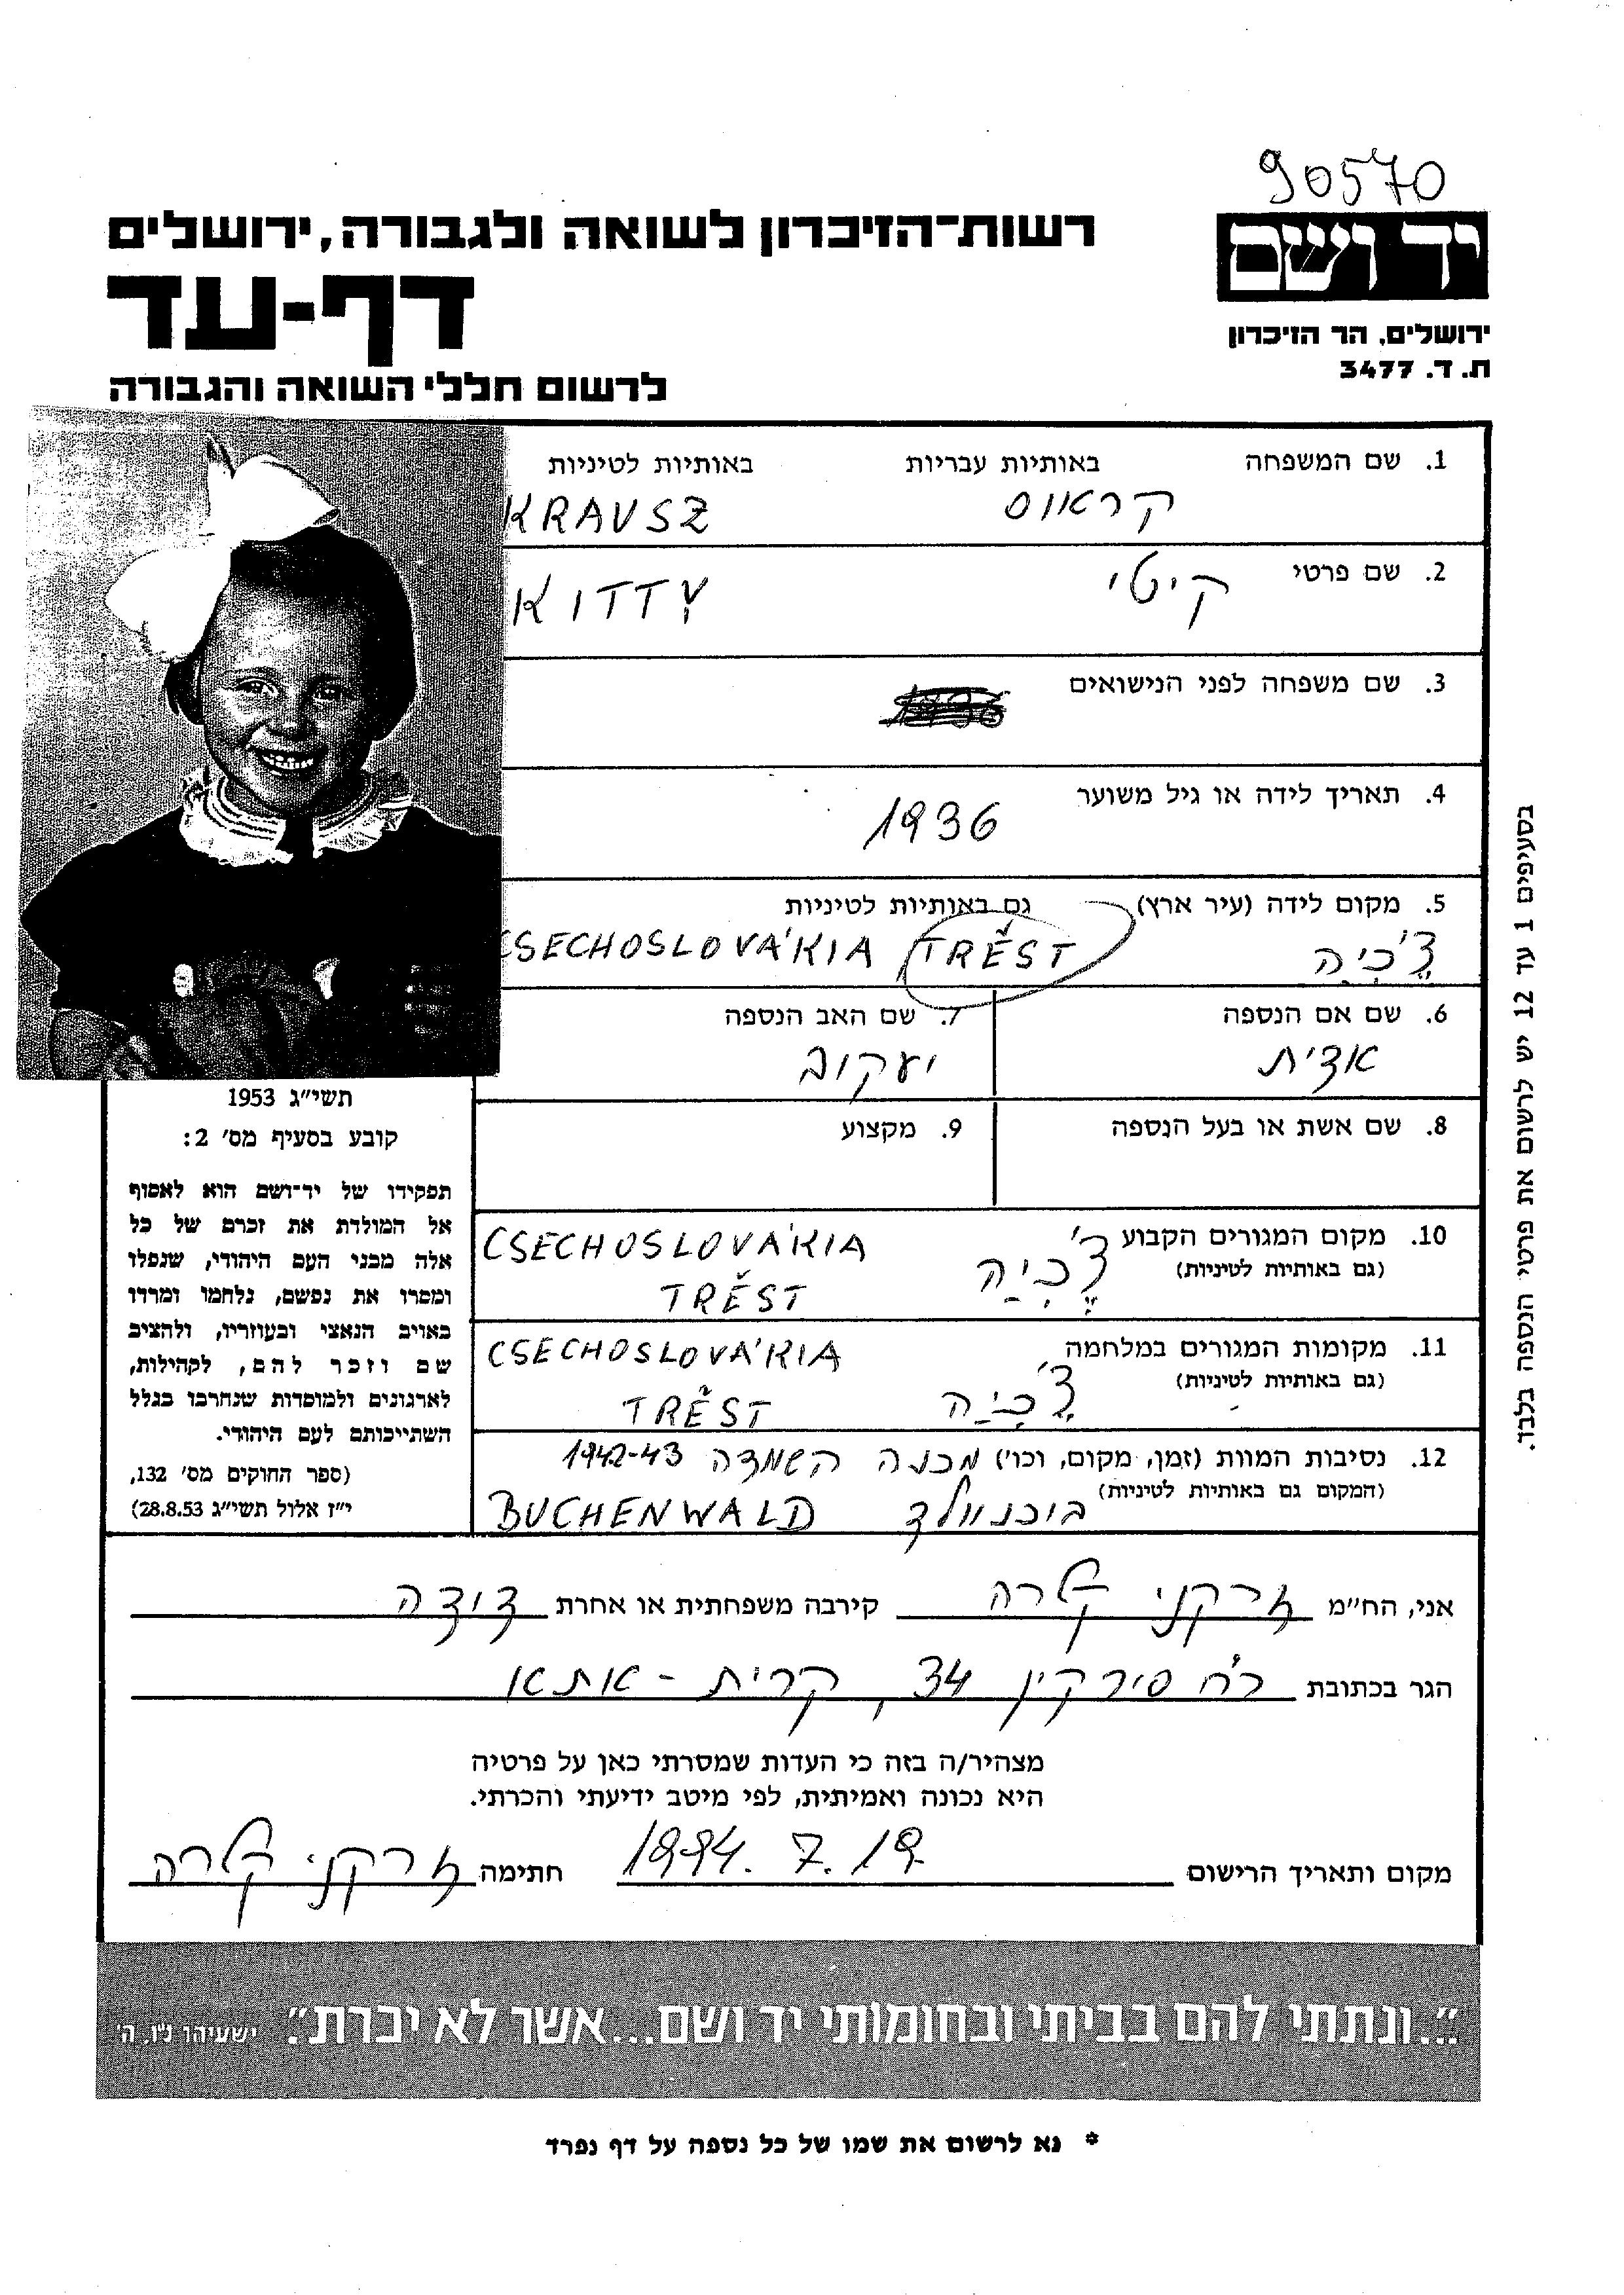 90570
יד ושם
ירושלים, הר הזיכרון
ת. ד. 3477
רשות-הזיכרון לשואה ולגבורה, ירושלים
דף-עד
לרשום חללי השואה והגבורה
1. שם המשפחה באותיות עבריות באותיות לטיניות
קראוס KRAUSZ
2. שם פרטי קיטי KITTY
3. שם משפחה לפני הנישואים
4. תאריך לידה או גיל משוער 1936
5. מקום לידה (עיר ארץ) גם באותיות לטיניות
צ'כיה TRĚST CSECHOSLOVÁKIA
6. שם אם הנספה 7. שם האב הנספה
אדית יעקוב
8. שם אשת או בעל הנספה 9. מקצוע
10. מקום המגורים הקבוע צ'כיה CSECHOSLOVÁKIA
(גם באותיות לטיניות) TRĚST
11. מקומות המגורים במלחמה CSECHOSLOVÁKIA
(גם באותיות לטיניות) צ'כיה TRĚST
12. נסיבות המוות (זמן, מקום, וכו') מכנה השמדה 1942-43
(המקום גם באותיות לטיניות) בוכנוולד BUCHENWALD
תשי"ג 1953
קובע בסעיף מס' 2:
תפקידו של יד-ושם הוא לאסוף
אל המולדת את זכרם של כל
אלה מבני העם היהודי, שנפלו
ומסרו את נפשם, נלחמו ומרדו
באויב הנאצי ובעוזריו, ולהציב
שם וזכר להם, לקהילות,
לארגונים ולמוסדות שנחרבו בגלל
השתייכותם לעם היהודי.
(ספר החוקים מס' 132,
י"ז אלול תשי"ג 28.8.53)
בסעיפים 1 עד 12 יש לרשום את פרטי הנספה בלבד.
אני, הח"מ ארקני קלרה קירבה משפחתית או אחרת דודה
הגר בכתובת רח פירקין 34, קרית-אתא
מצהיר/ה בזה כי העדות שמסרתי כאן על פרטיה
היא נכונה ואמיתית, לפי מיטב ידיעתי והכרתי.
מקום ותאריך הרישום 1994. 7. 19. חתימה ארקני קלרה
"...ונתתי להם בביתי ובחומותי יד ושם...אשר לא יכרת". ישעיהו נ"ו, ה'
* נא לרשום את שמו של כל נספה על דף נפרד